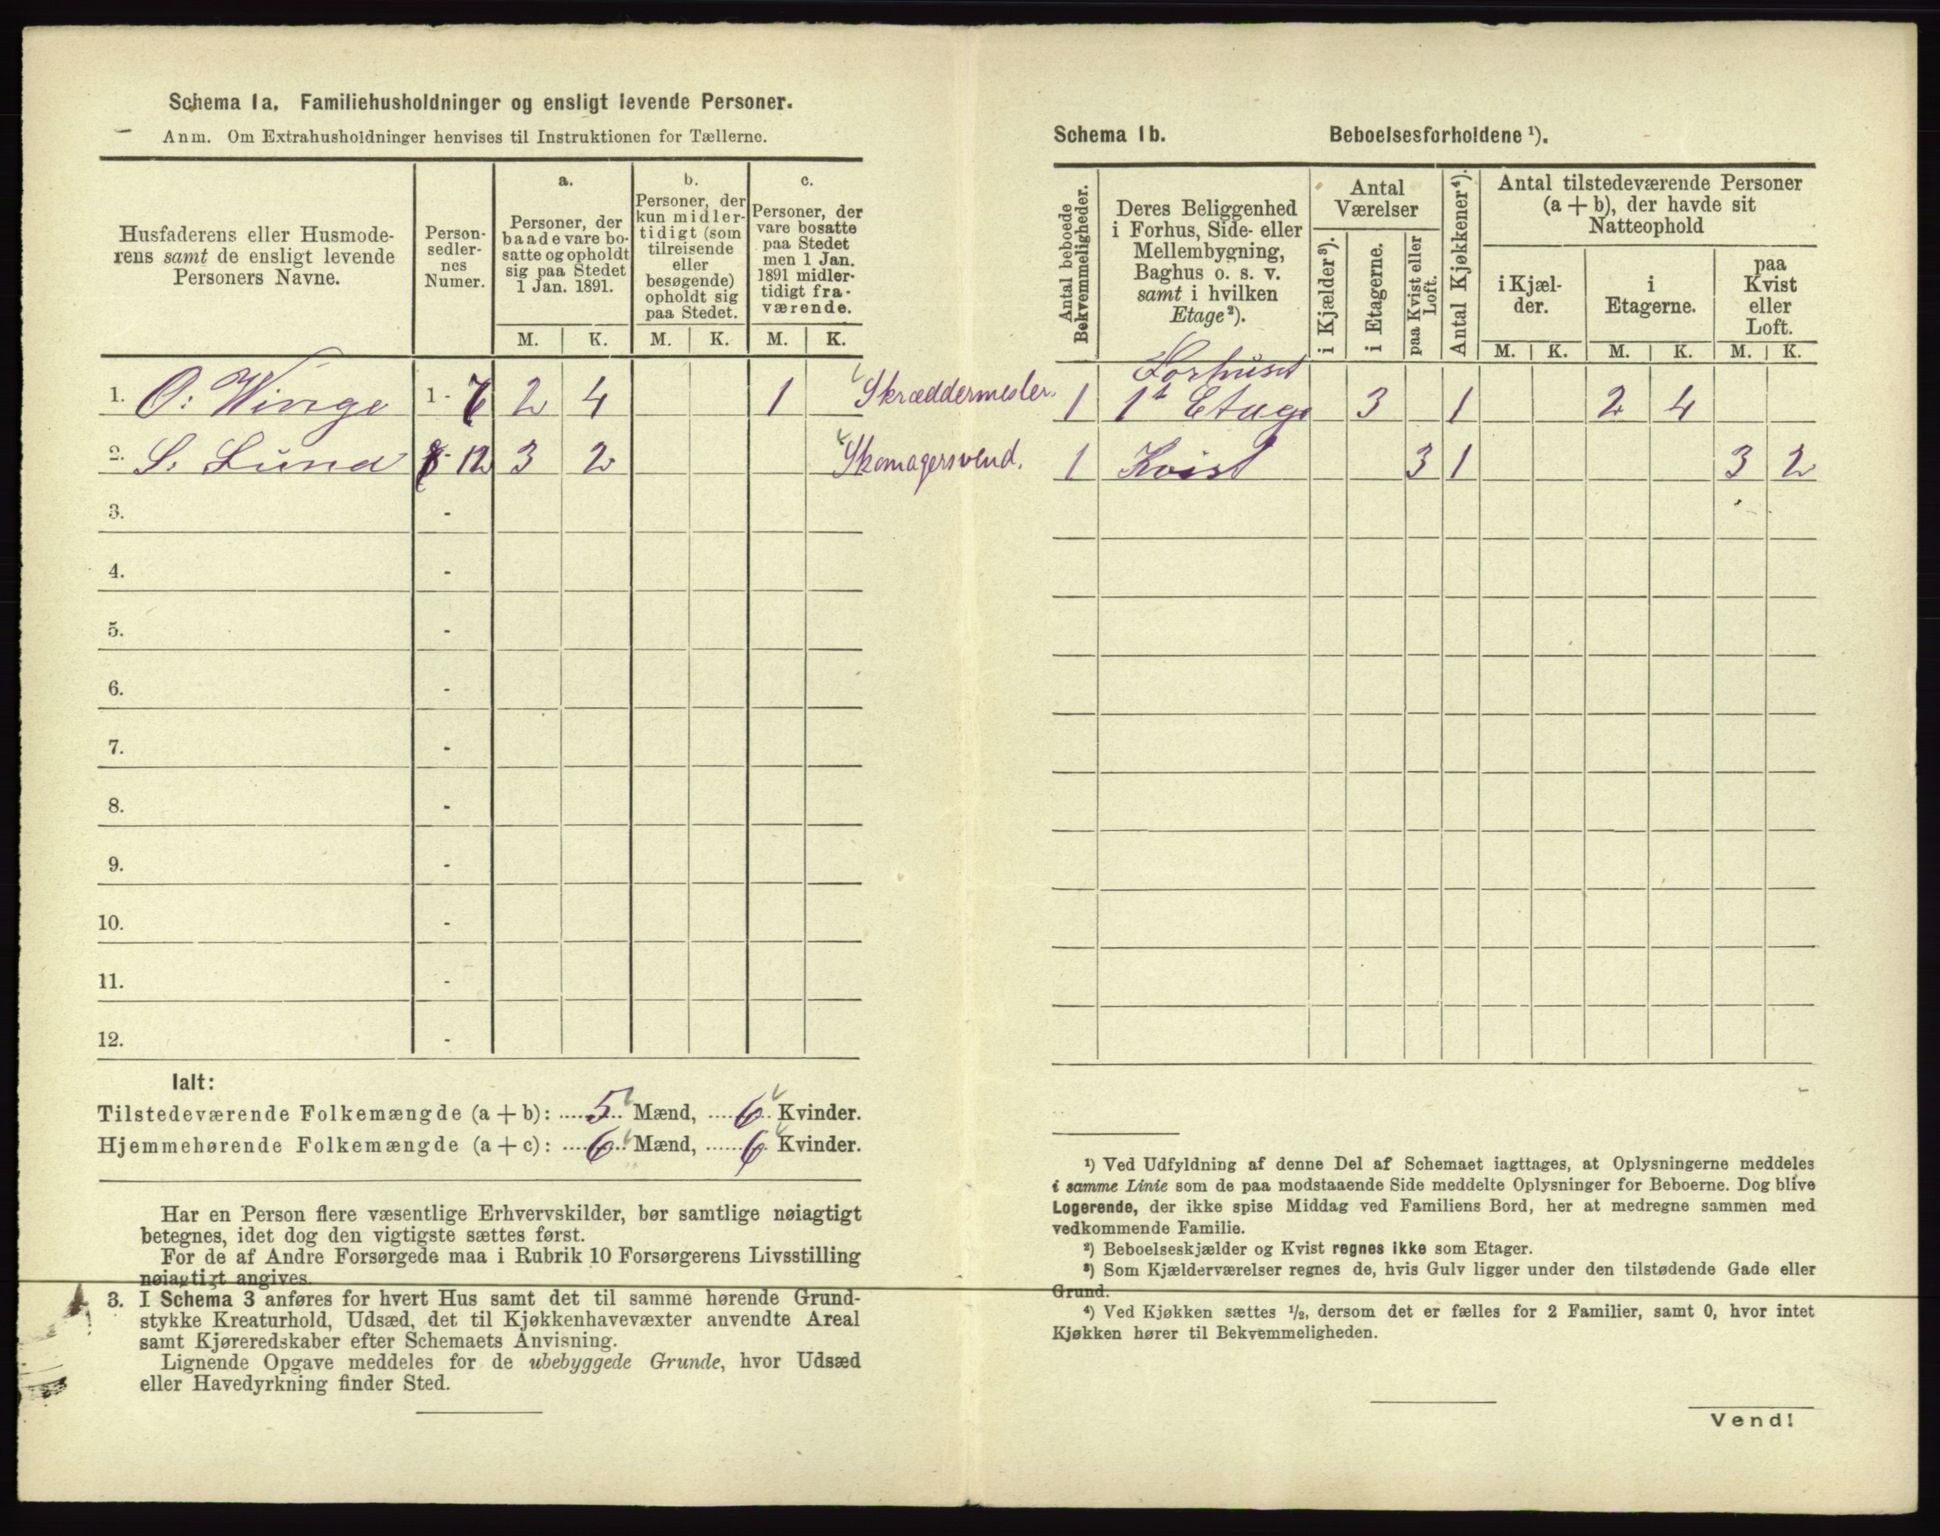 Schema 1a. Familiehusholdninger og ensligt levende Personer.
Anm. Om Extrahusholdninger henvises til Instruktionen for Tællerne.
Husfaderens eller Husmode-
rens samt de ensligt levende
Personers Navne.
Person-
sedler-
nes
Numer.
a.
Personer, der
baade vare bo-
satte og opholdt
sig paa Stedet
1 Jan. 1891.
b.
Personer, der
kun midler-
tidigt (som
tilreisende
eller
besøgende)
opholdt sig
paa Stedet.
c.
Personer, der
vare bosatte
paa Stedet
men 1 Jan.
1891 midler-
tidigt fra-
værende.
M. K. M. K. M. K.
1. O. Winge 1 - 7 2 4 1 Skræddermester.
2. S. Lund 8 - 12 3 2 Skomagersvend.
3. -
4. -
5. -
6. -
7. -
8. -
9. -
10. -
11. -
12. -
Ialt:
Tilstedeværende Folkemængde (a + b): 5 Mænd, 6 Kvinder.
Hjemmehørende Folkemængde (a + c): 6 Mænd, 6 Kvinder.
Har en Person flere væsentlige Erhvervskilder, bør samtlige nøiagtigt
betegnes, idet dog den vigtigste sættes først.
For de af Andre Forsørgede maa i Rubrik 10 Forsørgerens Livsstilling
nøiagtigt angives.
3. I Schema 3 anføres for hvert Hus samt det til samme hørende Grund-
stykke Kreaturhold, Udsæd, det til Kjøkkenhavevæxter anvendte Areal
samt Kjøreredskaber efter Schemaets Anvisning.
Lignende Opgave meddeles for de ubebyggede Grunde, hvor Udsæd
eller Havedyrkning finder Sted.
Schema 1b. Beboelsesforholdene ¹).
Antal beboede
Bekvemmeligheder.
Deres Beliggenhed
i Forhus, Side- eller
Mellembygning,
Baghus o. s. v.
samt i hvilken
Etage²).
Antal
Værelser
i Kjælder³).
i Etagerne.
paa Kvist eller
Loft.
Antal Kjøkkener⁴).
Antal tilstedeværende Personer
(a + b), der havde sit
Natteophold
i Kjæl-
der.
i
Etagerne.
paa
Kvist
eller
Loft.
M. K. M. K. M. K.
Forhuset
1 1ste Etage 3 1 2 4
1 Kvist 3 1 3 2
¹) Ved Udfyldning af denne Del af Schemaet iagttages, at Oplysningerne meddeles
i samme Linie som de paa modstaaende Side meddelte Oplysninger for Beboerne. Dog blive
Logerende, der ikke spise Middag ved Familiens Bord, her at medregne sammen med
vedkommende Familie.
²) Beboelseskjælder og Kvist regnes ikke som Etager.
³) Som Kjælderværelser regnes de, hvis Gulv ligger under den tilstødende Gade eller
Grund.
⁴) Ved Kjøkken sættes ¹/₂, dersom det er fælles for 2 Familier, samt 0, hvor intet
Kjøkken hører til Bekvemmeligheden.
Vend!